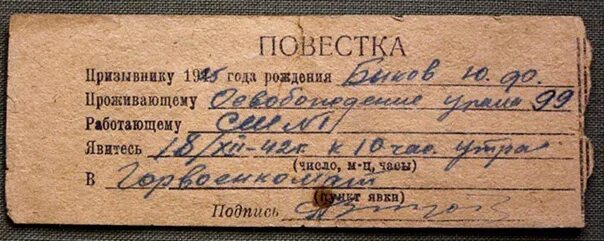 ПОВЕСТКА
Призывнику 1925 года рождения Быков Ю. Ф.
Проживающему Освобождение урала 99
Работающему СШ №1
Явитесь 18/XII-42г. к 10 час. утра
(число, м-ц, часы)
В Горвоенкомат
(пункт явки)
Подпись